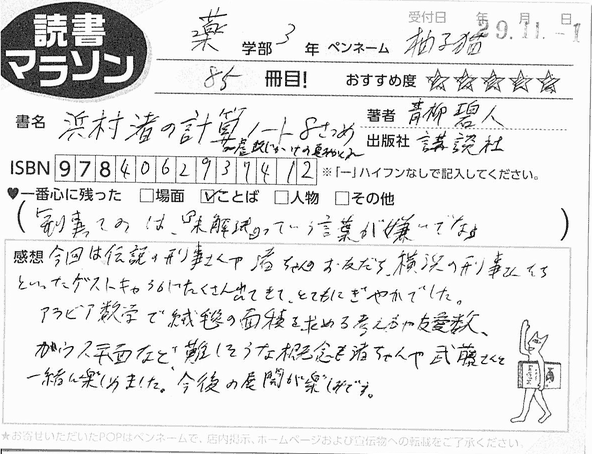 読書マラソン
受付日 年 月 日
29.11.-1
薬 学部 3 年 ペンネーム 柚子猫
85 冊目! おすすめ度 ☆☆☆☆☆
書名 浜村渚の計算ノート 8さつめ
著者 青柳碧人
出版社 講談社
ISBN 9784062937412 ※「ー」ハイフンなしで記入してください。
♥一番心に残った □場面 ☑ことば □人物 □その他
(刑事てのは、『未解決』っていう言葉が嫌いでな)
感想 今回は伝説の刑事さんや渚ちゃんのお友だち、横浜の刑事さん
といったゲストキャラがたくさん出てきて、とてもにぎやかでした。
アラビア数学で絨毯の面積を求める考え方や友愛数、
ガウス平面など、難しそうな概念も渚ちゃんや武藤さんと
一緒に楽しめました。今後の展開が楽しみです。
★お寄せいただいたPOPはペンネームで、店内掲示、ホームページおよび宣伝物への転載をご了承ください。